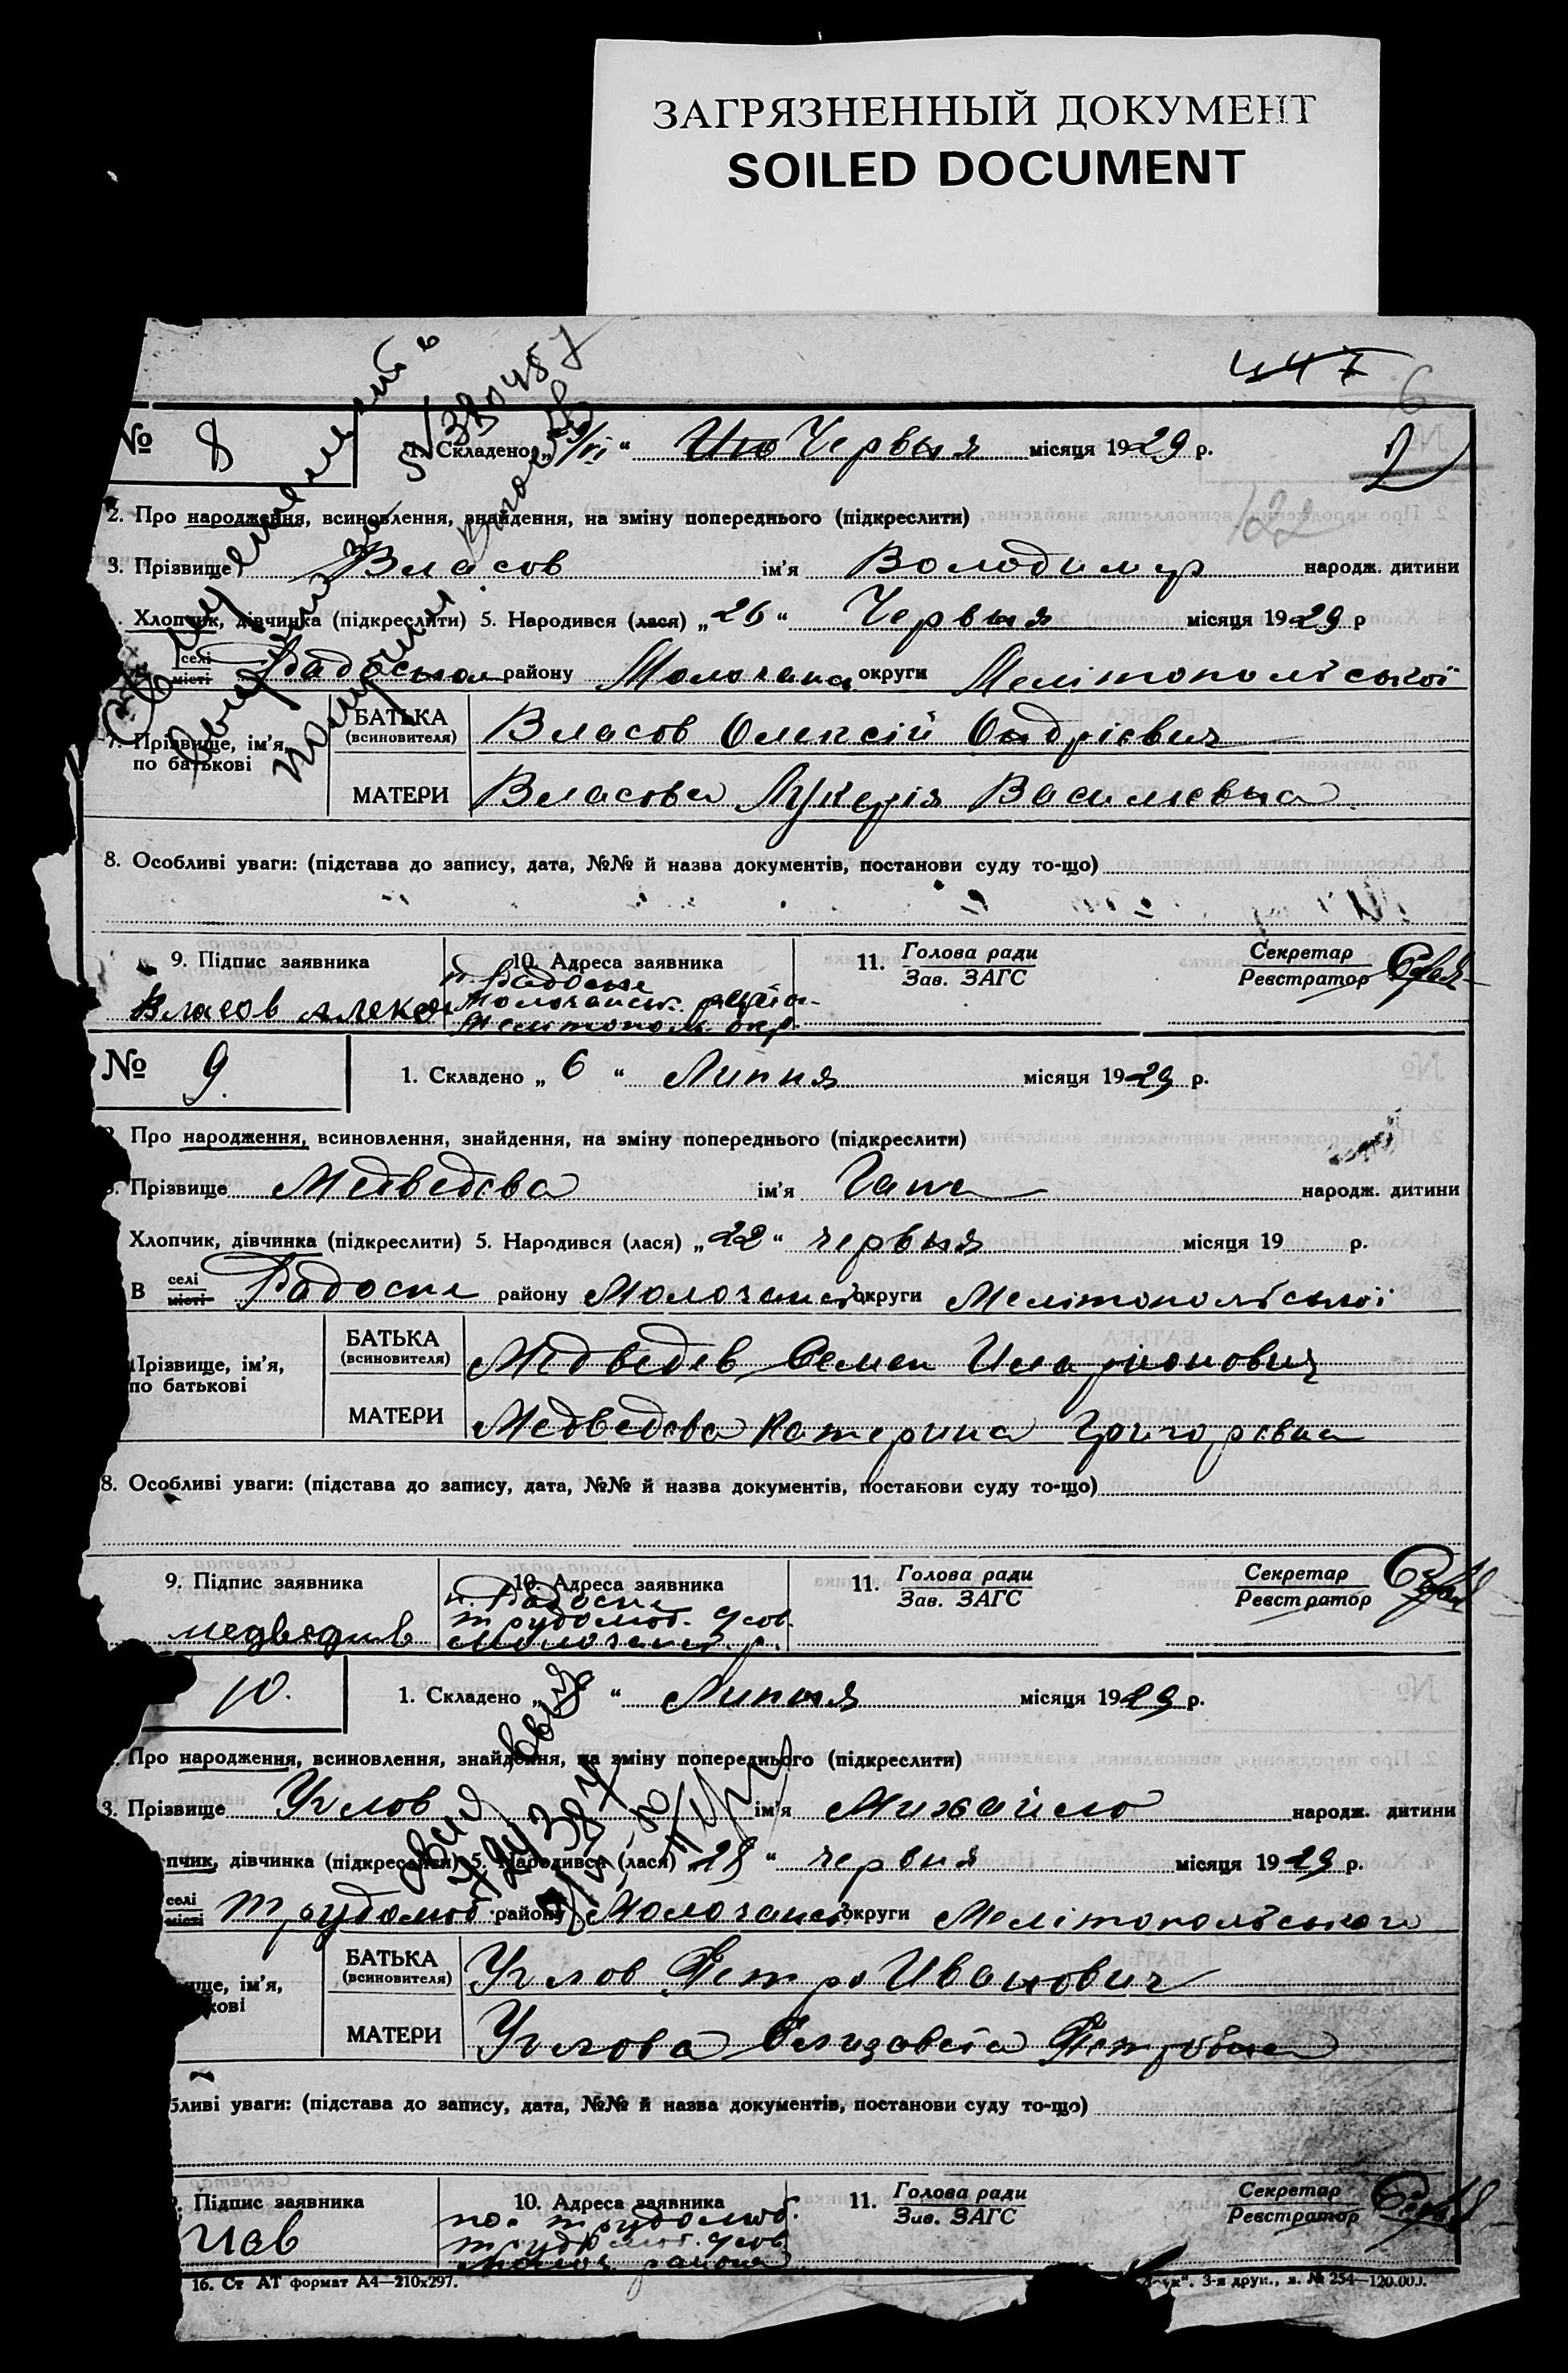 ЗАГРЯЗНЕННЫЙ ДОКУМЕНТ
SOILED DOCUMENT
447
6
2
№ 8
1. Складено „ /VI “ Червня місяця 1929 р.
122
2. Про народження, всиновлення, знайдення, на зміну попереднього (підкреслити)
3. Прізвище Власов ім'я Володимир народж. дитини
Хлопчик, дівчинка (підкреслити) 5. Народився (лася) „26“ Червня місяця 1929 р
селі
місті Радосня району Молочанс округи Мелітопольської
7. Прізвище, ім'я, по батькові
БАТЬКА (всиновителя) Власов Олексій Ондрієвич
МАТЕРИ Власова Лукерія Василевна
8. Особливі уваги: (підстава до запису, дата, №№ й назва документів, постанови суду то-що)
9. Підпис заявника 10. Адреса заявника 11. Голова ради Секретар
Зав. ЗАГС Реєстратор
Власов Алексе
п. Радосне
Молочанськ. району
Мелітополь. окр.
№ 9.
1. Складено „ 6 “ Липня місяця 1929 р.
Про народження, всиновлення, знайдення, на зміну попереднього (підкреслити)
3. Прізвище Медведєва ім'я Гана народж. дитини
Хлопчик, дівчинка (підкреслити) 5. Народився (лася) „22“ червня місяця 19 р.
В селі
місті Радосне району Молочансь округи Мелітопольської
Прізвище, ім'я, по батькові
БАТЬКА (всиновителя) Медведев Семен Иларионович
МАТЕРИ Медведева Катерина Григоревна
8. Особливі уваги: (підстава до запису, дата, №№ й назва документів, постанови суду то-що)
9. Підпис заявника 10. Адреса заявника 11. Голова ради Секретар
Зав. ЗАГС Реєстратор
медведив
п. Радосне
трудолюб. /сов.
Молочанск. р.
10.
1. Складено „ “ Липня місяця 1929 р.
Про народження, всиновлення, знайдення, на зміну попереднього (підкреслити)
3. Прізвище Углов ім'я Михайло народж. дитини
пчик, дівчинка (підкреслити) 5. Народився (лася) 28 “ червня місяця 1929 р.
селі
місті Трудолюб. району Молочансь округи Мелітопольського
ище, ім'я,
кові
БАТЬКА (всиновителя) Углов Петро Иванович
МАТЕРИ Углова Елизавета Петровна
бливі уваги: (підстава до запису, дата, №№ й назва документів, постанови суду то-що)
Підпис заявника 10. Адреса заявника 11. Голова ради Секретар
Зав. ЗАГС Реєстратор
пос. трудолюб.
трудолюб. /сов.
Молоч. района
16. Ст АТ формат А4—210х297. 3-я друк., з. № 254—120.000.